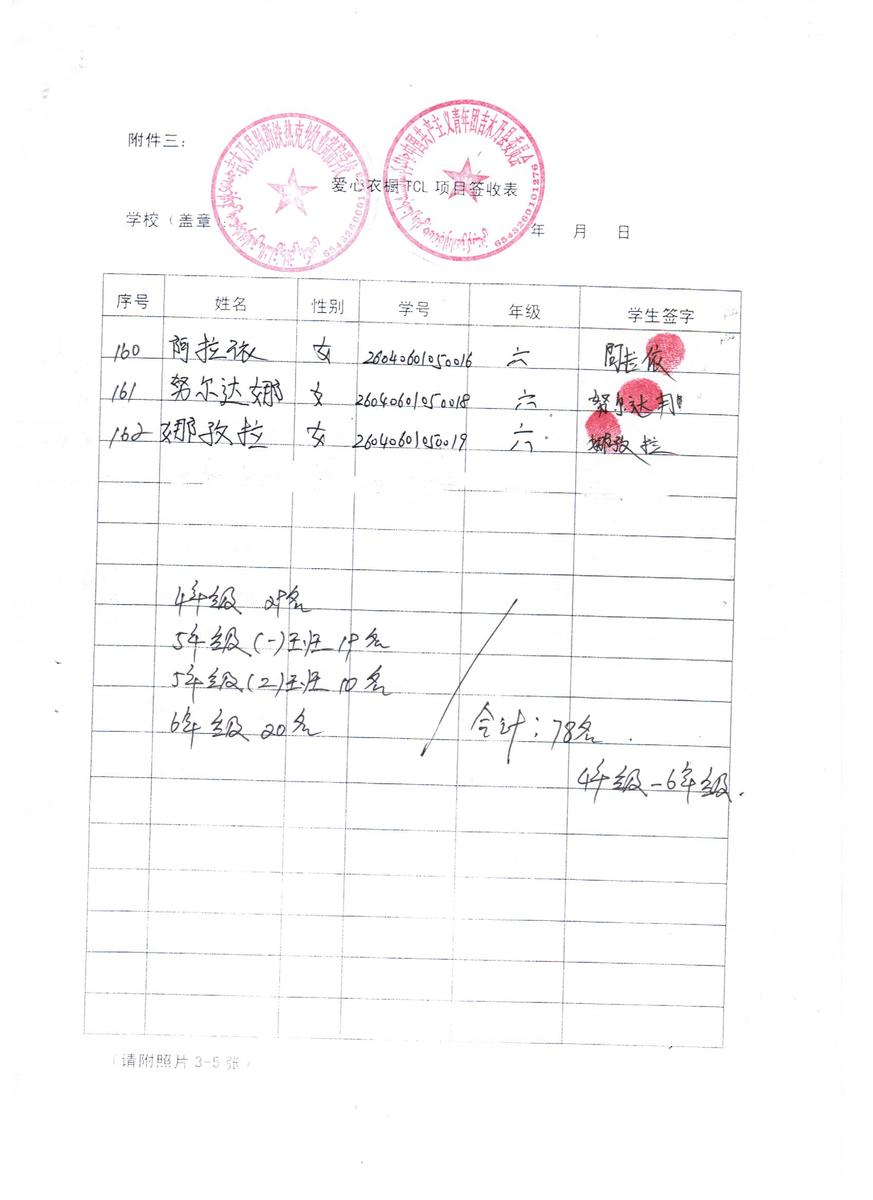 附件三：
爱心衣橱 TCL 项目签收表
学校（盖章）
年 月 日
序号 姓名 性别 学号 年级 学生签字
160 阿拉依 女 26040601050016 六 阿拉依
161 努尔达娜 女 26040601050018 六 努尔达
162 娜孜拉 女 26040601050019 六 娜孜拉
4年级
5年级(一)班 19名
5年级(2)班 10名
6年级 20名
合计：78名
4年级-6年级.
（请附照片 3-5 张）